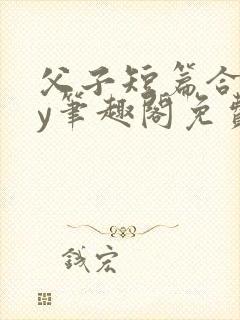 父子短篇合
y笔趣阁免费
钱宏